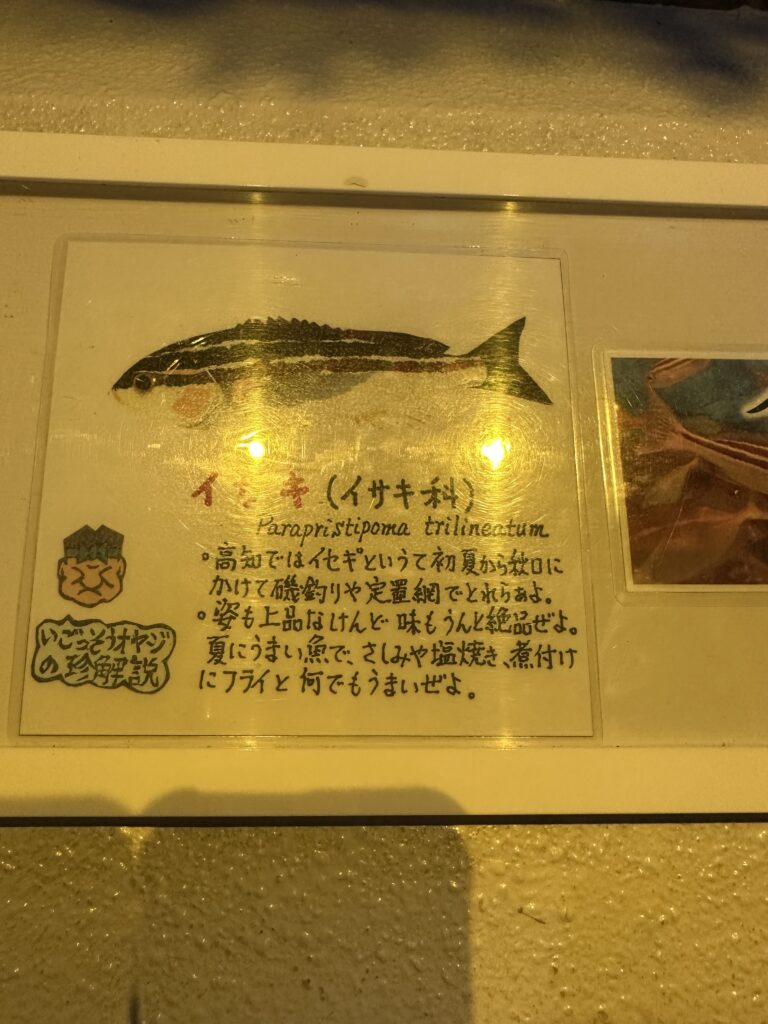 (イサキ科)
Parapristipoma trilineatum
。高知ではイセギというて初夏から秋口に
かけて磯釣りや定置網でとれらあよ。
。姿も上品なけんど味もうんと絶品ぜよ。
夏にうまい魚で、さしみや塩焼き、煮付け
にフライと何でもうまいぜよ。
いごっそうオヤジ
の珍解説